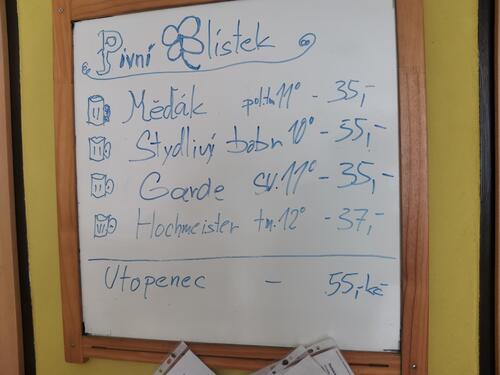 Pivní lístek
Měďák pol.tm 11° - 35,-
Stydlivý bobr 10° - 55,-
Garde sv. 11° - 35,-
Hochmeister tm. 12° - 37,-
Utopenec - 55,-kč